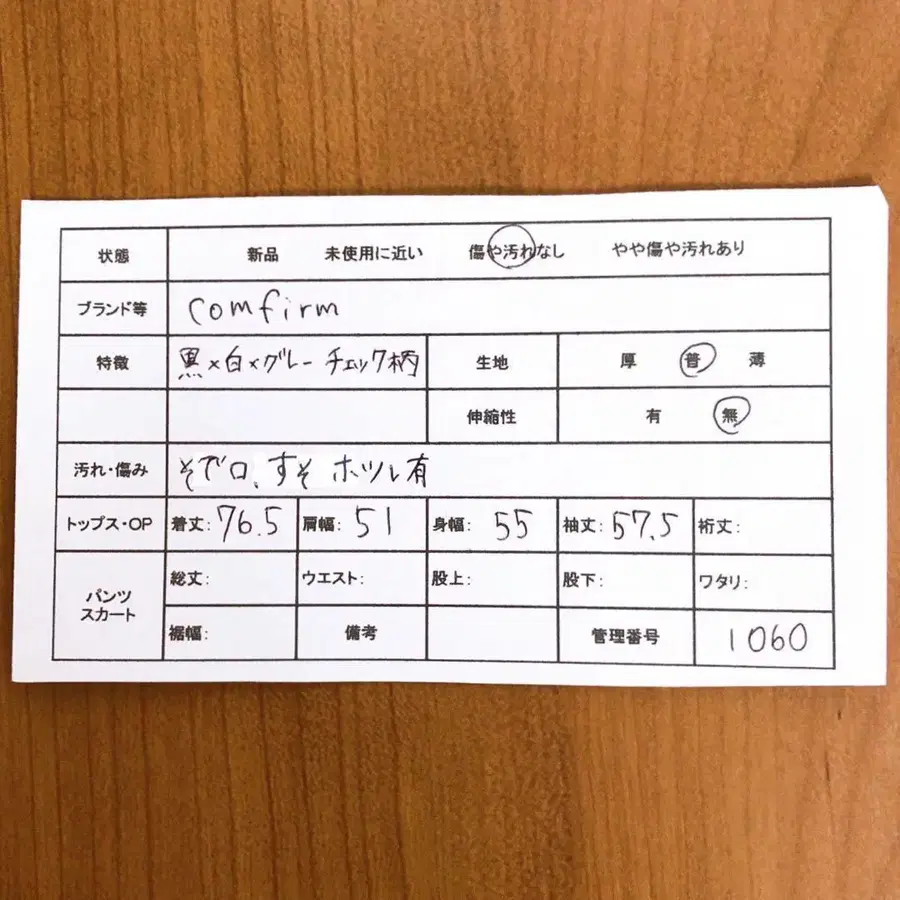 状態 新品 未使用に近い 傷や汚れなし やや傷や汚れあり
ブランド等 comfirm
特徴 黒×白×グレー チェック柄 生地 厚 普 薄
伸縮性 有 無
汚れ・傷み そで口、すそ ホツレ有
トップス・OP 着丈: 76.5 肩幅: 51 身幅: 55 袖丈: 57.5 裄丈:
パンツ スカート 総丈: ウエスト: 股上: 股下: ワタリ:
裾幅: 備考 管理番号 1060